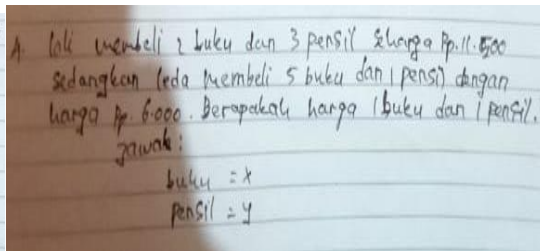 A. Loli membeli 2 buku dan 3 pensil seharga Rp. 11.500
sedangkan leda membeli 5 buku dan 1 pensil dengan
harga Rp. 6.000. Berapakah harga 1 buku dan 1 pensil.
Jawab:
buku = x
pensil = y